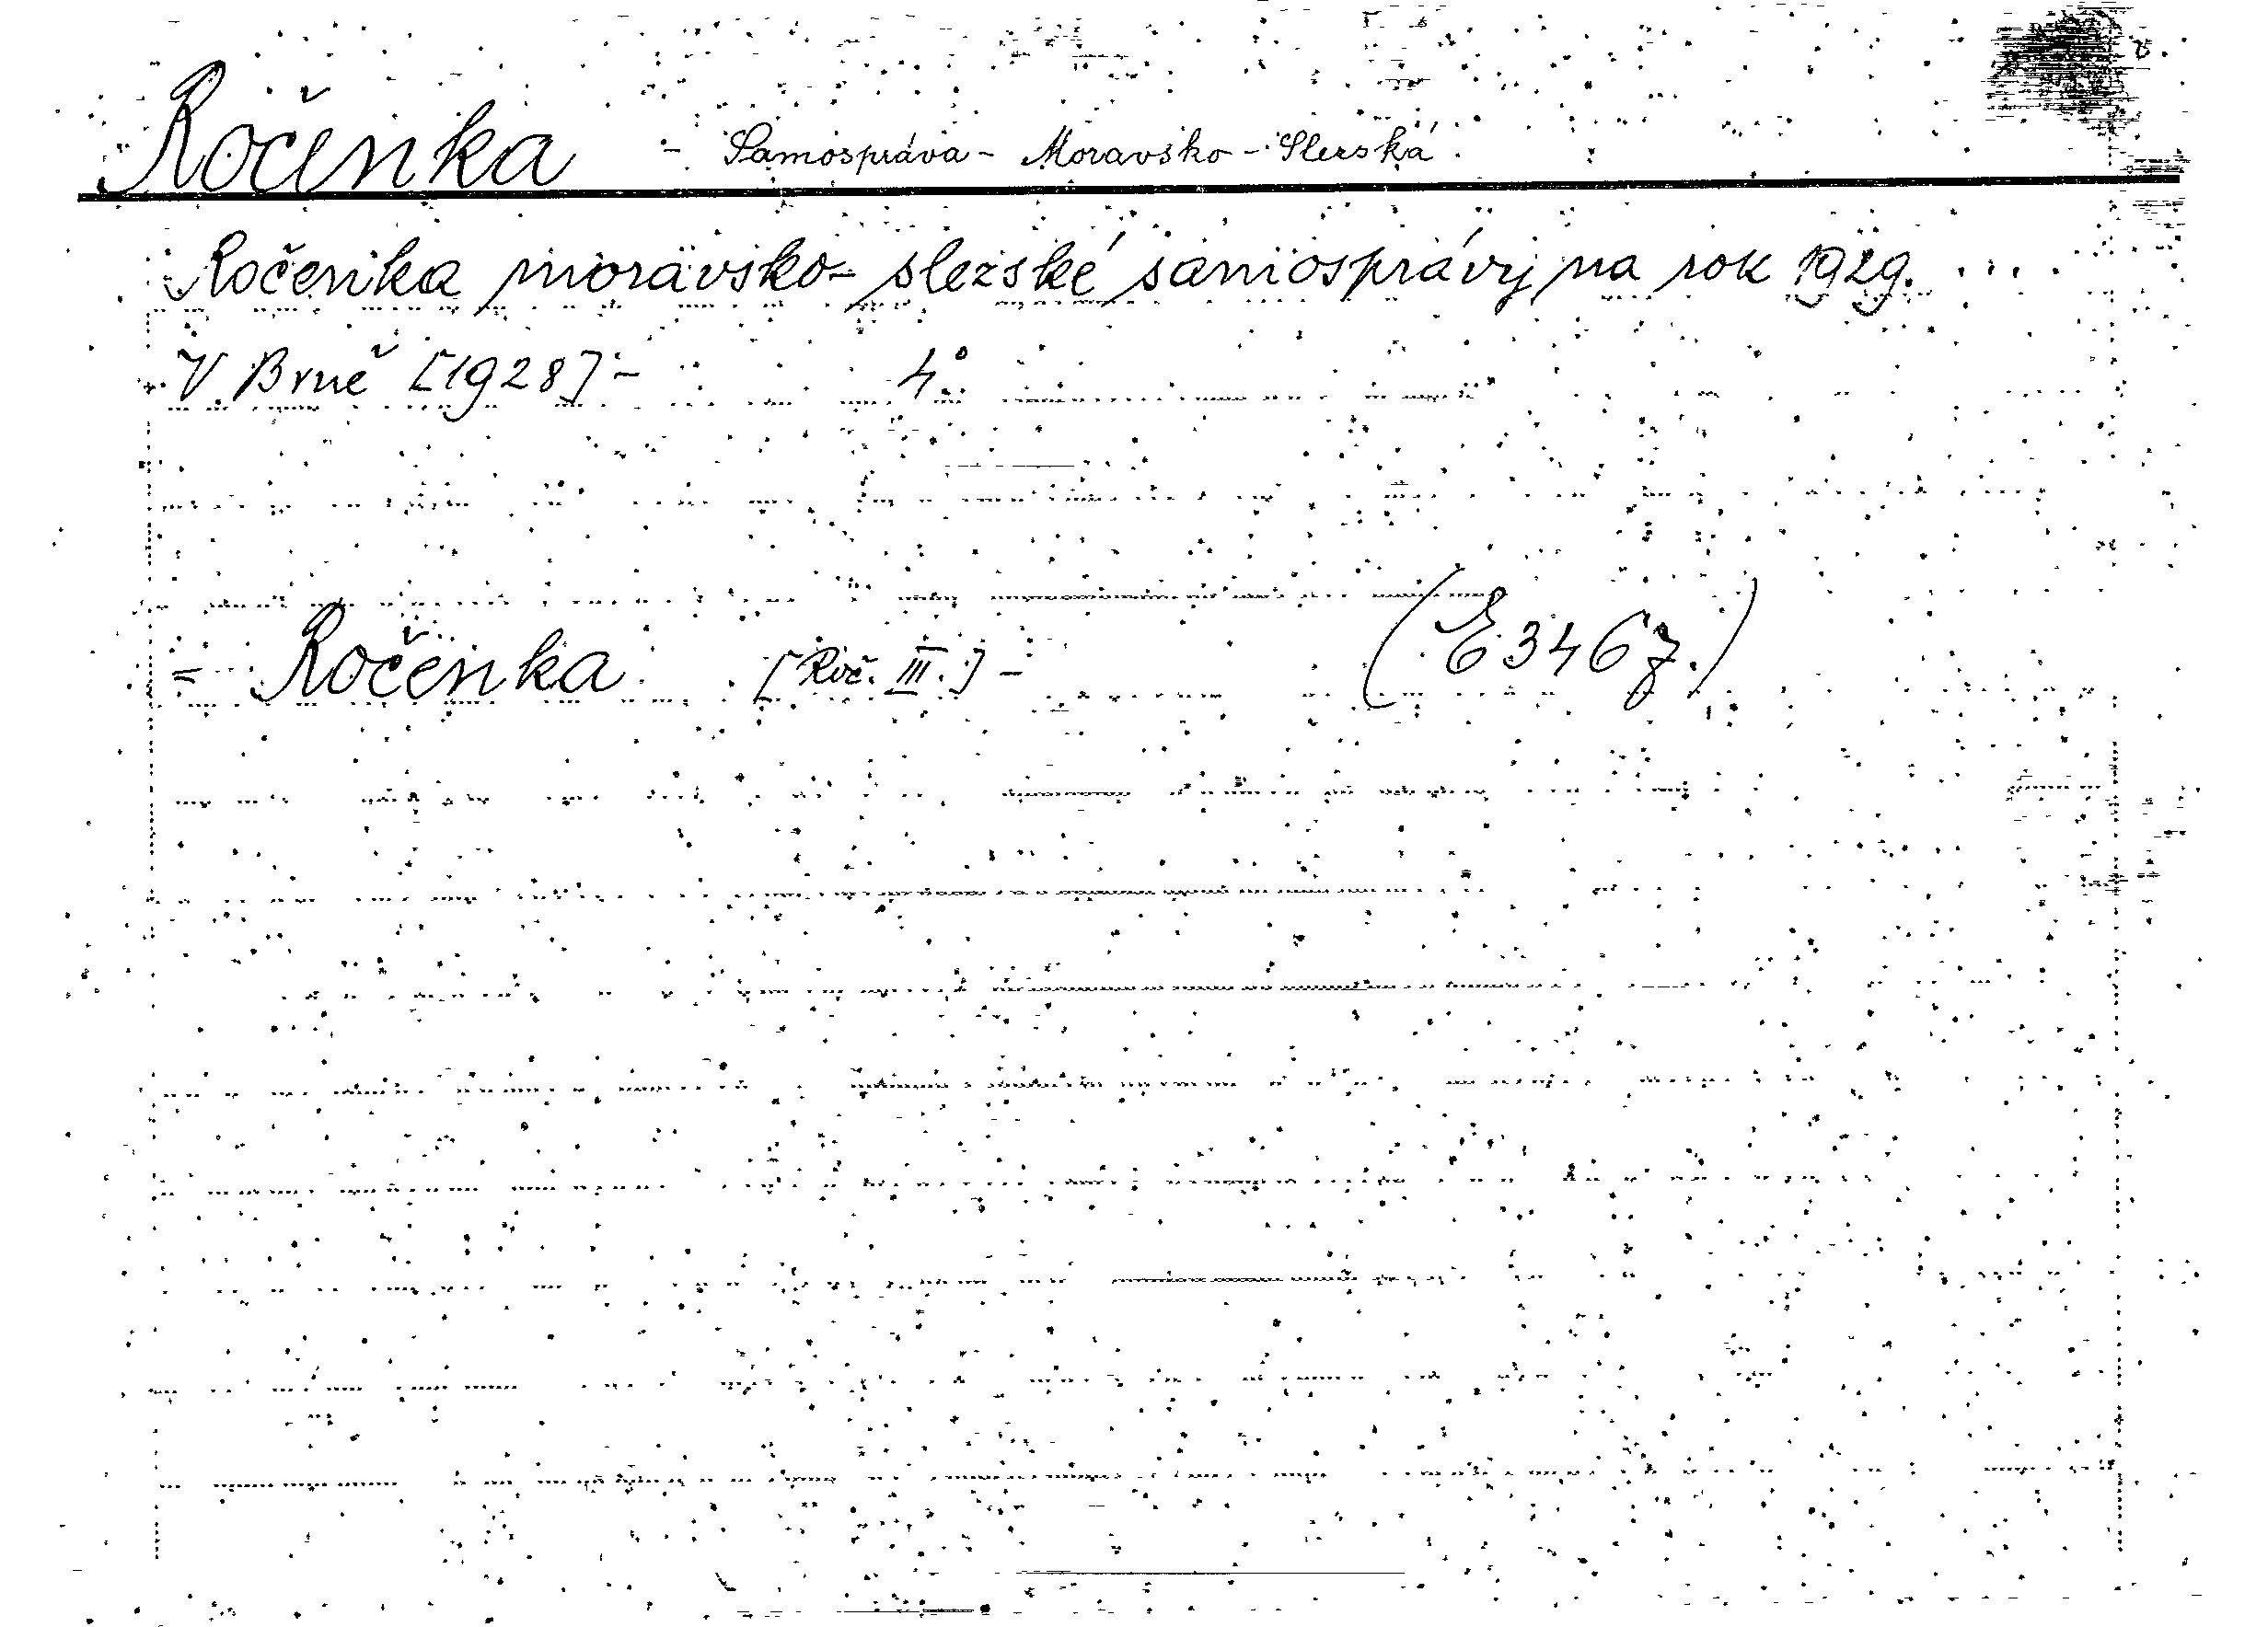 Ročenka - Samospráva - Moravsko - Slezská
Ročenka moravsko-slezské samosprávy na rok 1929.
V Brně [1928] - 4°
= Ročenka [Roč. III.] - (E 3467.)